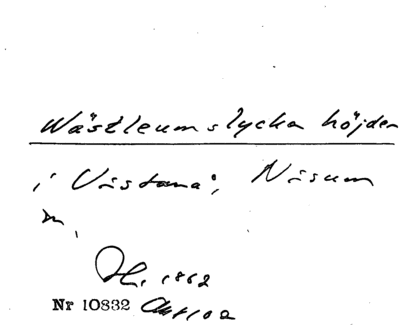 Wästleumslycka höjden
i Vistana, Nisum
m,
1862
Nr 10832